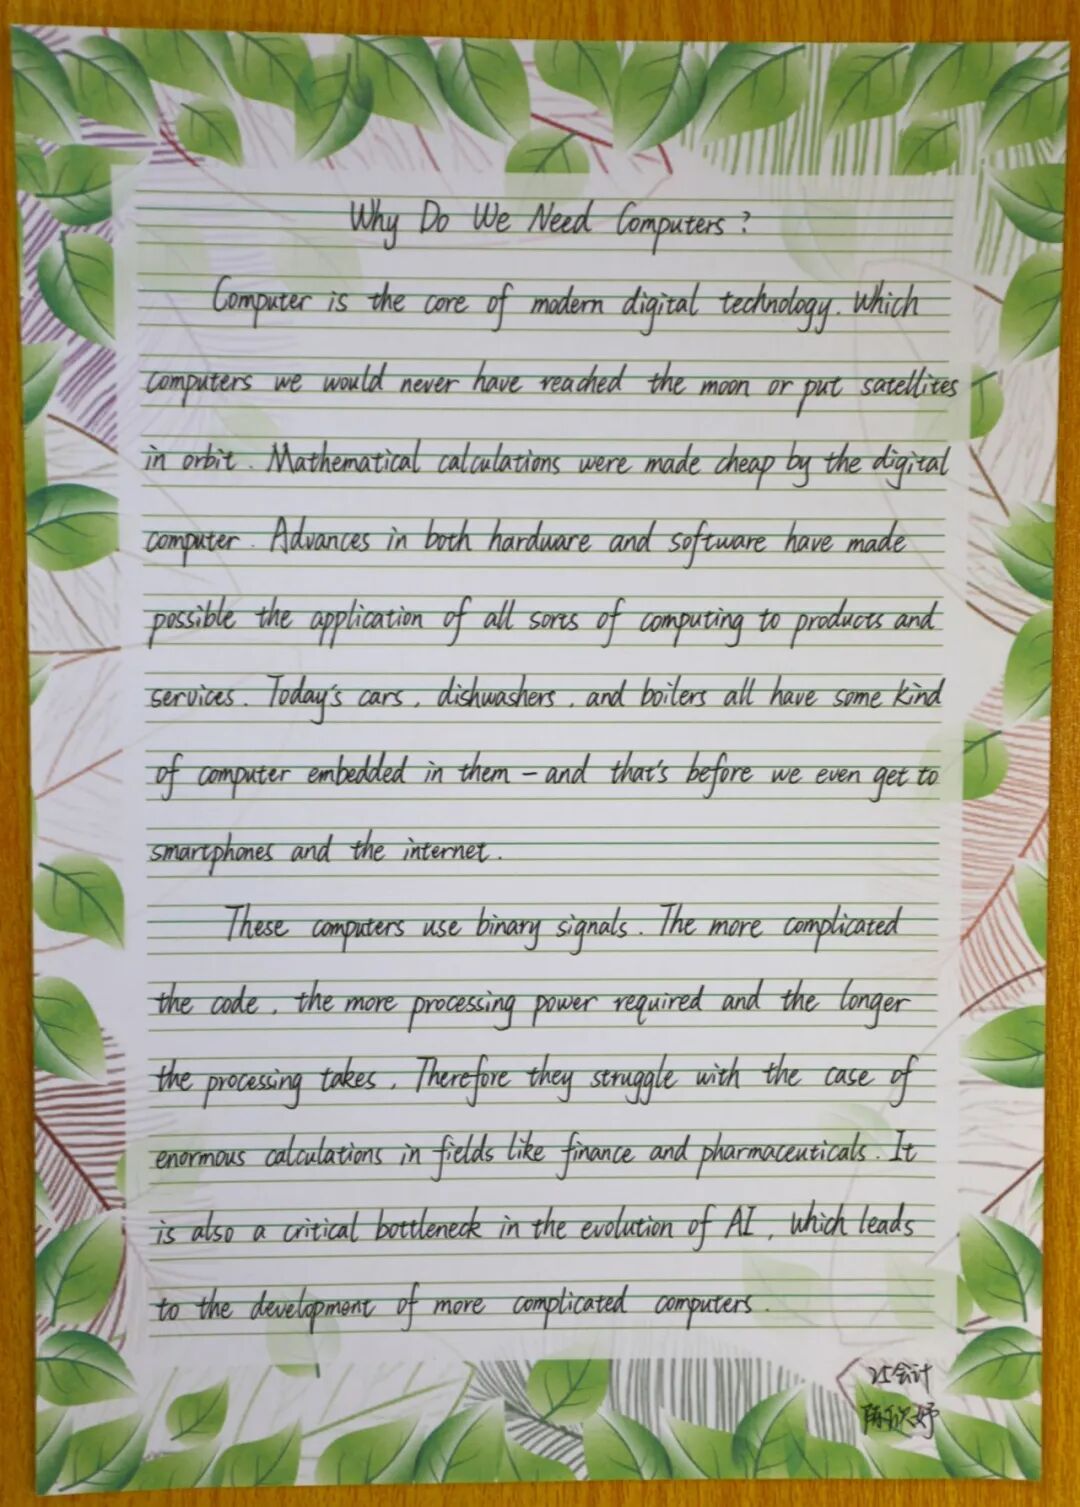 Why Do We Need Computers?
Computer is the core of modern digital technology. Which
computers we would never have reached the moon or put satellites
in orbit. Mathematical calculations were made cheap by the digital
computer. Advances in both hardware and software have made
possible the application of all sorts of computing to products and
services. Today's cars, dishwashers, and boilers all have some kind
of computer embedded in them – and that's before we even get to
smartphones and the internet.
These computers use binary signals. The more complicated
the code, the more processing power required and the longer
the processing takes. Therefore they struggle with the case of
enormous calculations in fields like finance and pharmaceuticals. It
is also a critical bottleneck in the evolution of AI, which leads
to the development of more complicated computers.
25会计
陈欣妤